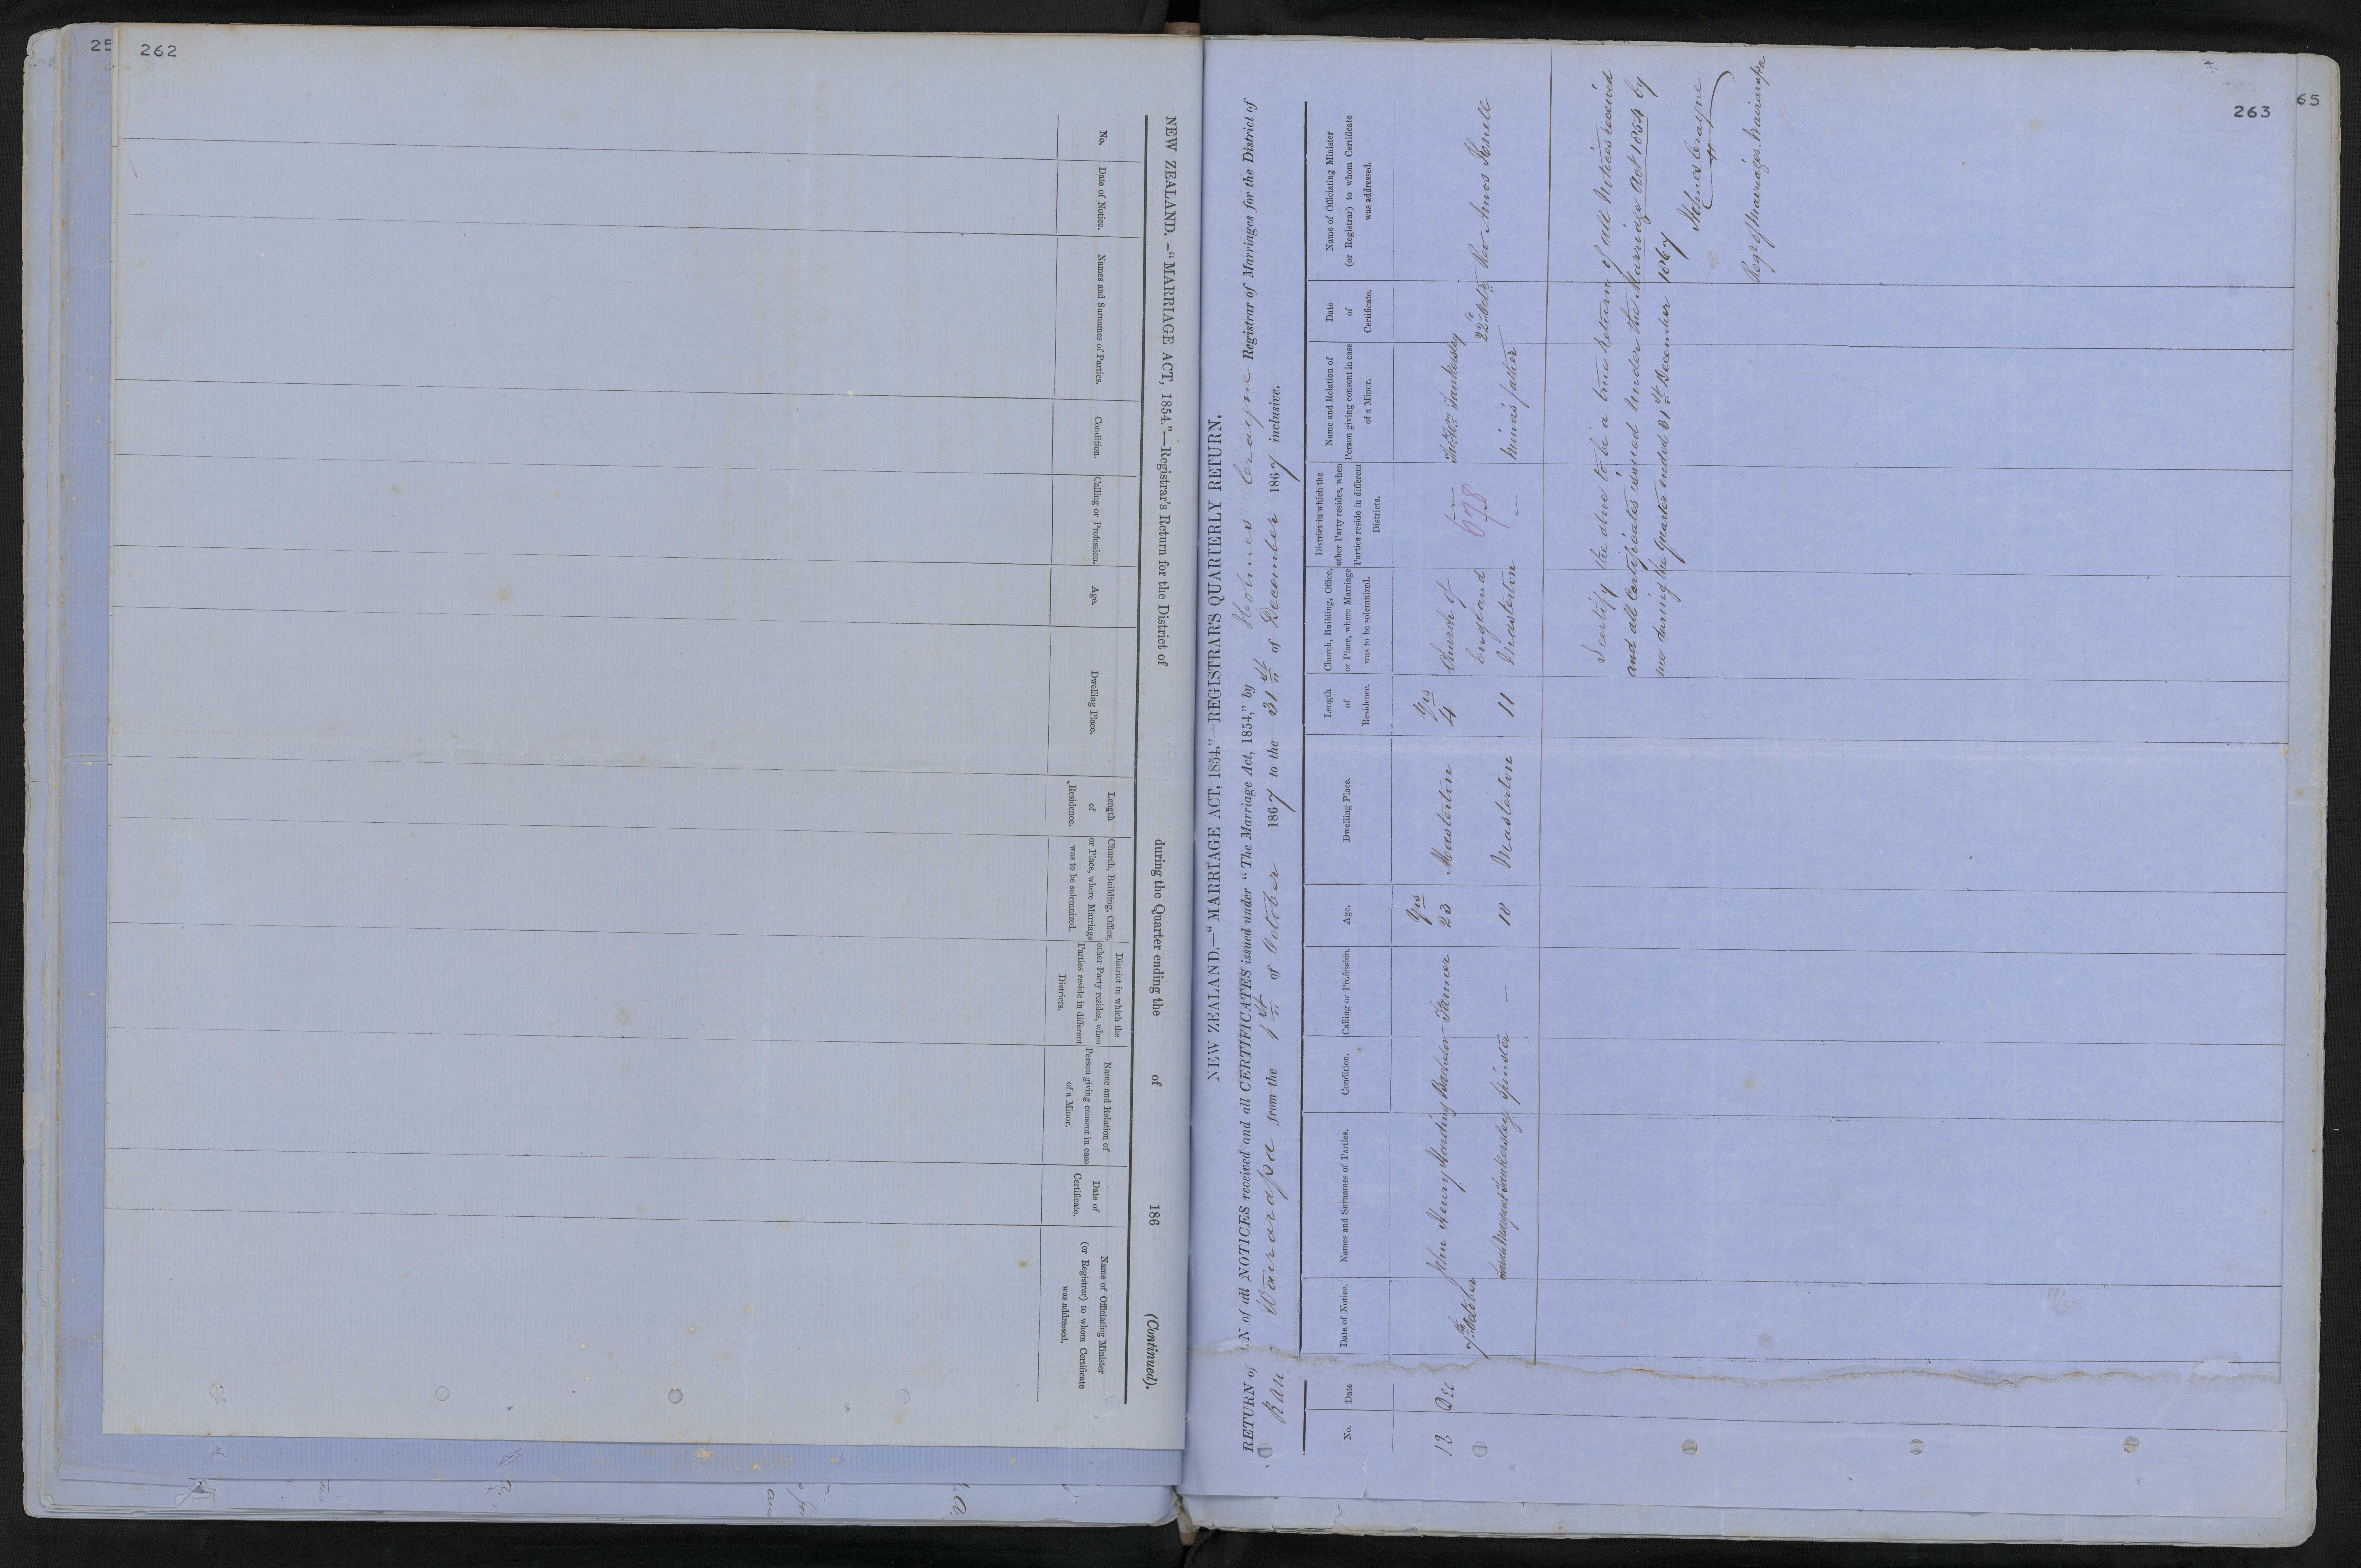 25
262
NEW ZEALAND. –“MARRIAGE ACT, 1854.”—Registrar's Return for the District of during the Quarter ending the of 186 (Continued).
No.
Date of Notice.
Names and Surnames of Parties.
Condition.
Calling or Profession.
Age.
Dwelling Place.
Length
of
Residence.
Church, Building, Office,
or Place, where Marriage
was to be solemnized.
District in which the
other Party resides, when
Parties reside in different
Districts.
Name and Relation of
Person giving consent in case
of a Minor.
Date of
Certificate.
Name of Officiating Minister
(or Registrar) to whom Certificate
was addressed.
263
65
NEW ZEALAND.—“MARRIAGE ACT, 1854.”—REGISTRAR'S QUARTERLY RETURN.
RETURN of
N of all NOTICES received and all CERTIFICATES issued under “The Marriage Act, 1854,” by Holmes Crayne Registrar of Marriages for the District of
Wairarapa from the 1st of October 1867 to the 31st of December 1867 inclusive.
No.
Date
Date of Notice.
Names and Surnames of Parties.
Condition.
Calling or Profession.
Age.
Dwelling Place.
Length
of
Residence.
Church, Building, Office,
or Place, where Marriage
was to be solemnized.
District in which the
other Party resides, when
Parties reside in different
Districts.
Name and Relation of
Person giving consent in case
of a Minor.
Date
of
Certificate.
Name of Officiating Minister
(or Registrar) to whom Certificate
was addressed.
12
7th October
John Henry Harding Bachelor Farmer
Yrs
23
Masterton
Yrs
4
Church of
England
Masterton
678
Tankersley
Minor's father
22d Octr
Rev Amos Knell
Margaret Tankersley Spinster —
18
Masterton
11
—
I certify the above to be a true Return of all Notices received
and all Certificates issued under the Marriage Act 1854 by
me during the Quarter ended 31st December 1867
Holmes Crayne
Regr of Marriages. Wairarapa